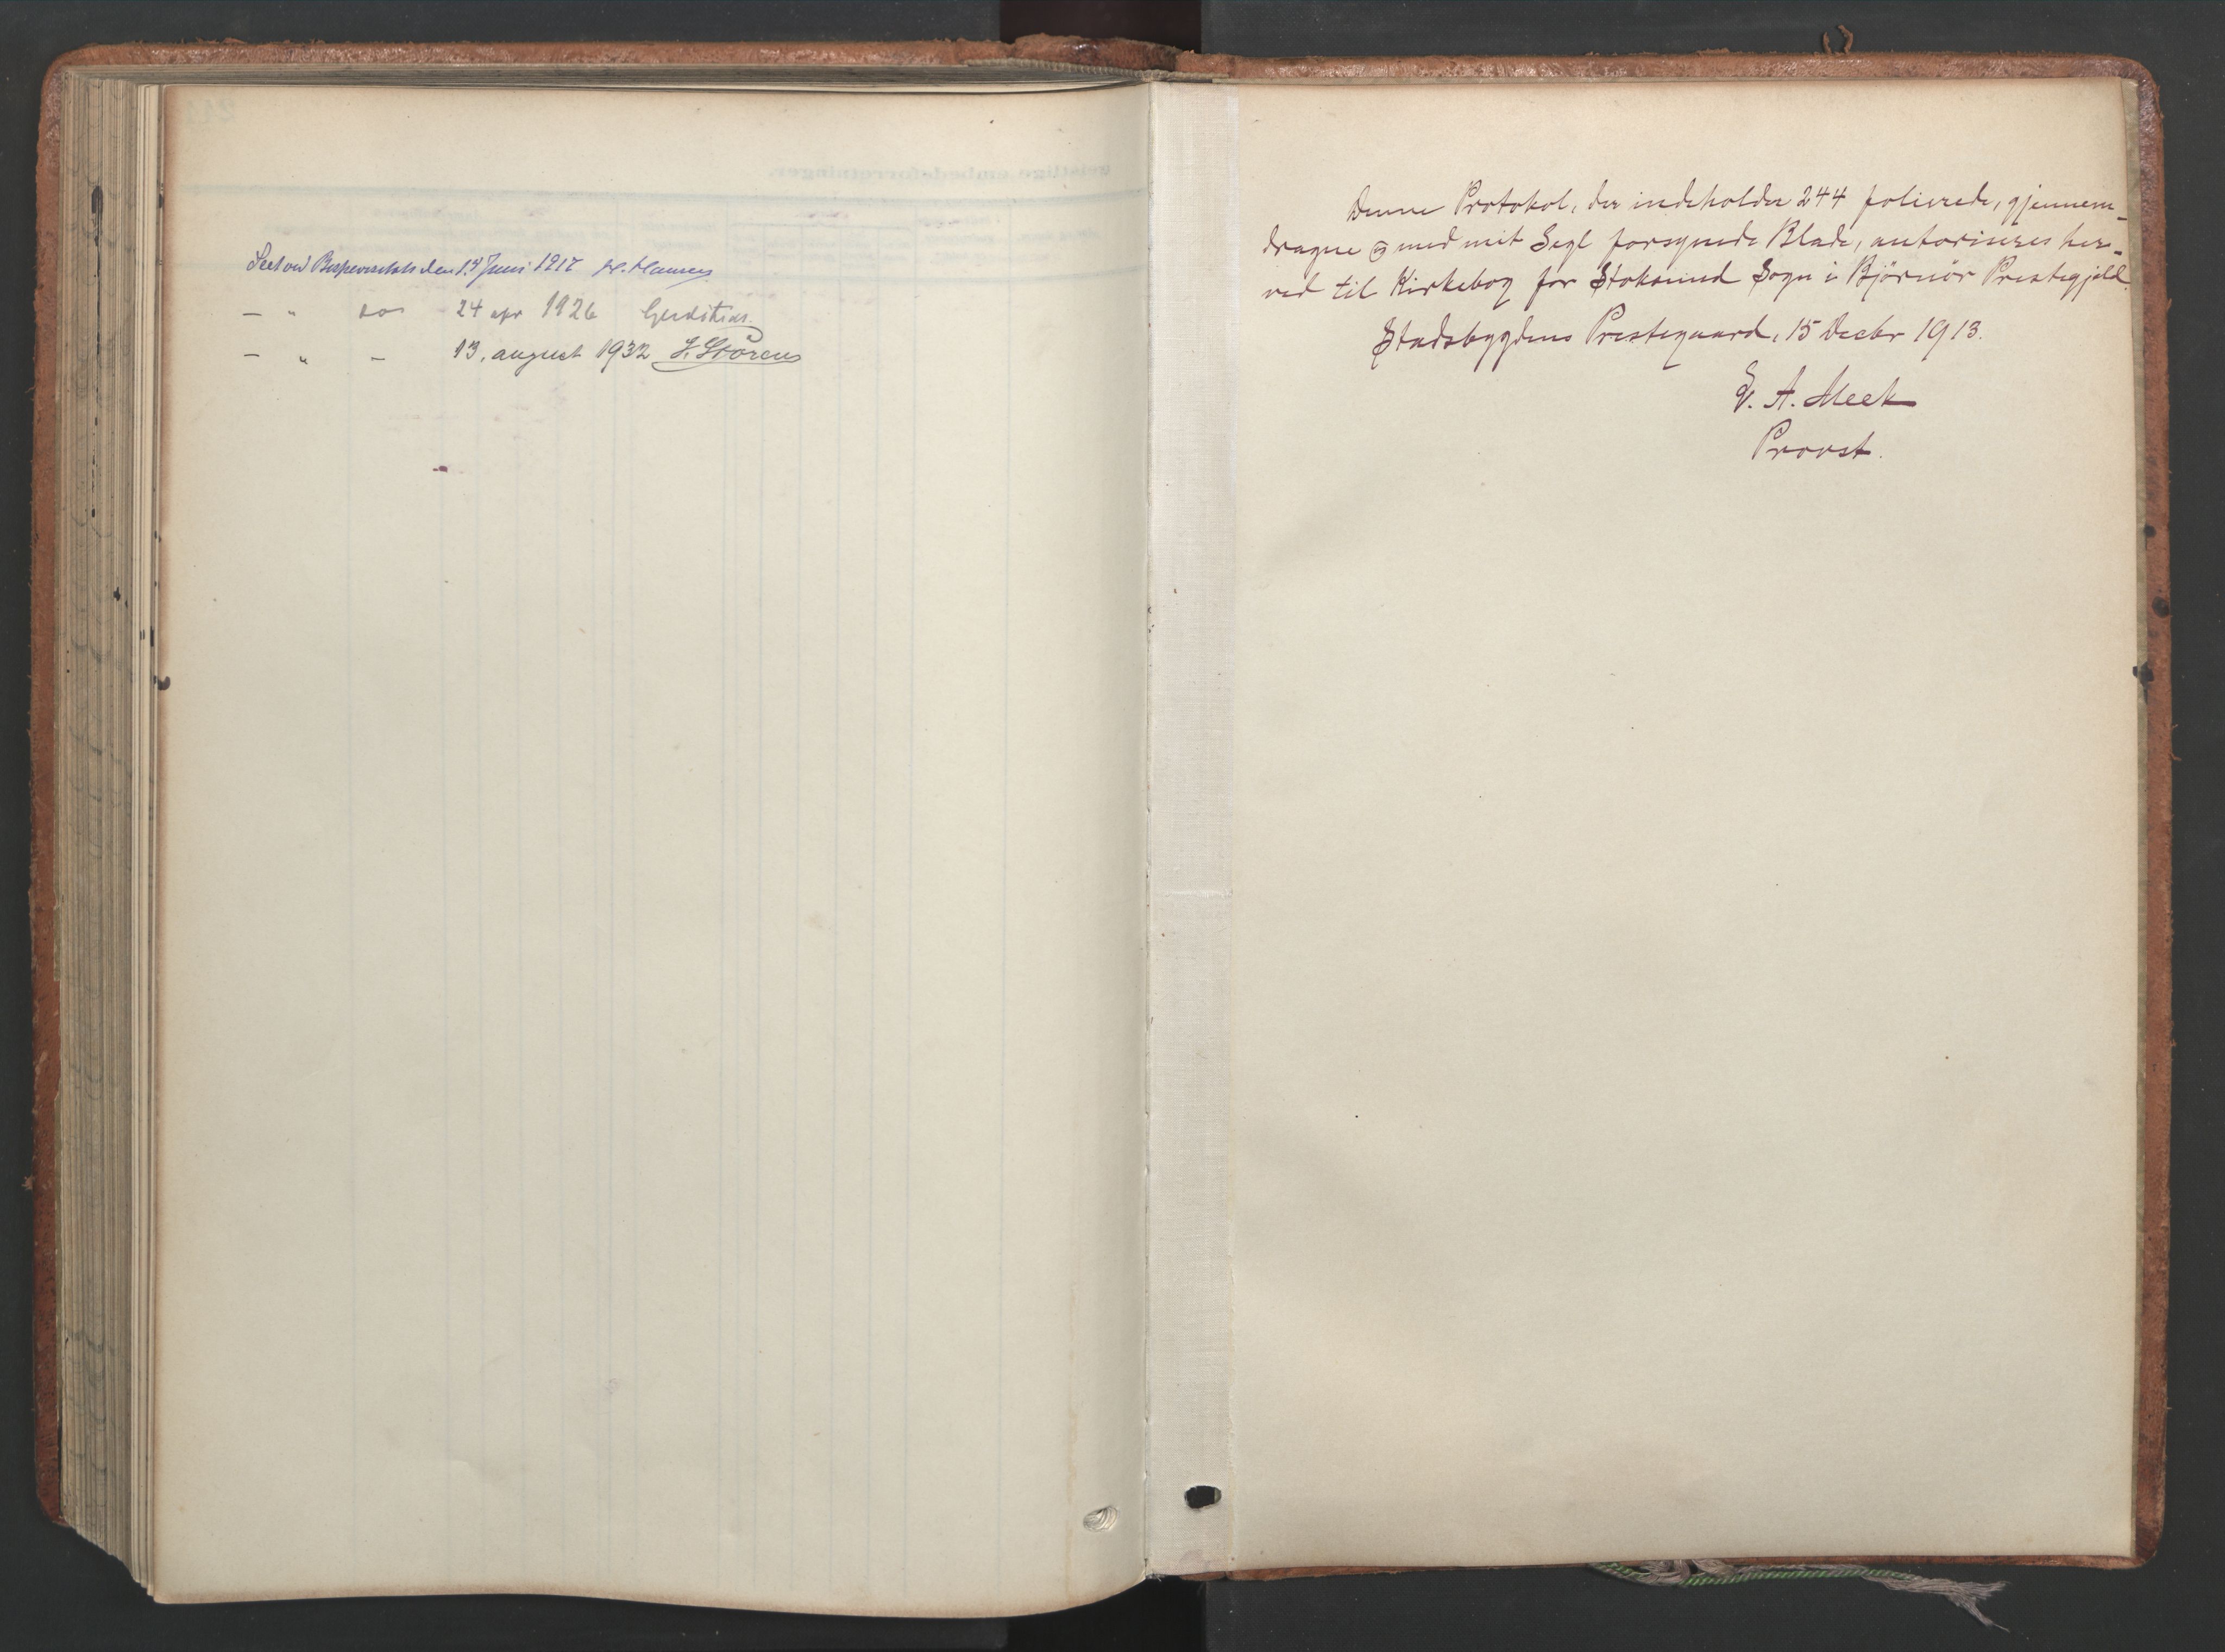 Seet ved Bispevisitats den 14 Juni 1917
— " do 24 apr 1926
— " — 13. august 1932 J. Støren
Denne Protokol, der indeholder 244 folierede, gjennem-
dragne og med mit Segl forsynede Blade, autoriseres her-
ved til Kirkebog for Stoksund Sogn i Bjørnør Prestegjeld.
Stadsbygdens Prestegaard, 15 Decbr 1913.
E. A. Meek
Provst.